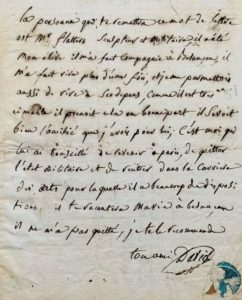 La personne qui te remettra ce mot de lettre
est Mr flatters Sculpteur et militaire il a été
mon élève il m'a fait compagnie à
m'a fait rire plus d'une fois, et je me permettois
aussi de rire à ses dépens comme il est très
aimable il prenoit cela en bonne part, il savoit
bien l'amitié que j'avois pour lui, c'est moi qui
lui ai conseillé de revenir à paris, de quitter
l'état militaire et de rentrer dans la carrière
des arts pour laquelle il a beaucoup de disposi
tions, il te racontera
il ne m'a pas quitté, je te le recommend
ton ami David